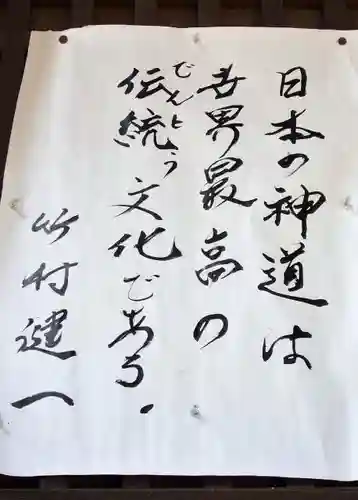 日本の神道は
世界最高の
伝統でんとう文化である.
竹村健一